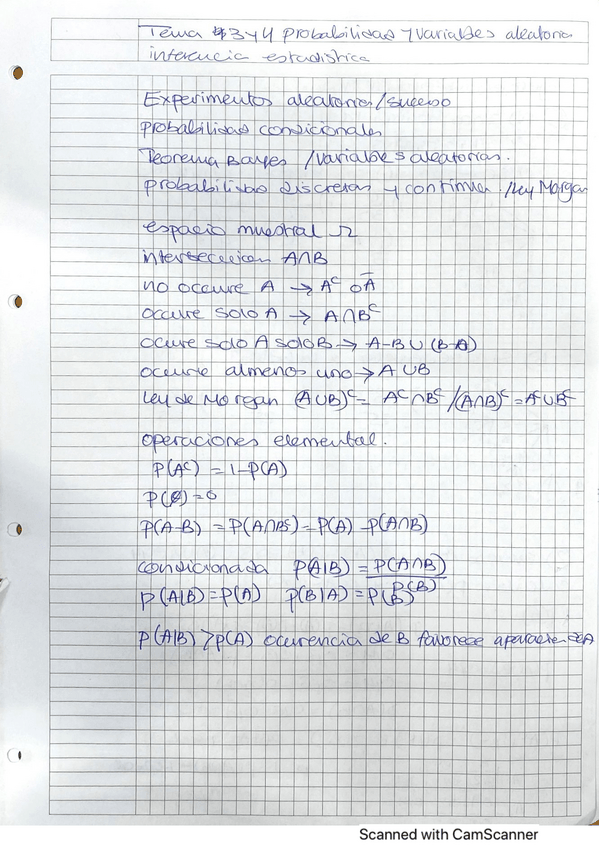 Tema 3 y 4 probabilidad y variables aleatoria
inferencia estadistica
Experimentos aleatorios/suceso
probabilidad condicionales
Teorema Bayes /variables aleatorias.
probabilidad discretas y continua. /Ley Morgan
espacio muestral Ω
interseccion A∩B
no occure A → Aᶜ o Ā
occure solo A → A∩Bᶜ
ocure solo A solo B → A-B ∪ (B-A)
ocurre almenos uno → A∪B
Ley de Morgan (A∪B)ᶜ = Aᶜ∩Bᶜ /(A∩B)ᶜ = Aᶜ∪Bᶜ
operaciones elemental.
P(Aᶜ) = 1-P(A)
P(∅)=0
P(A-B) = P(A∩Bᶜ) = P(A) - P(A∩B)
condicionada P(A|B) = P(A∩B)
P(B)
P(A|B) = P(A) P(B|A) = P(B)
P(A|B) > P(A) ocurencia de B favorece aparacien de A
Scanned with CamScanner